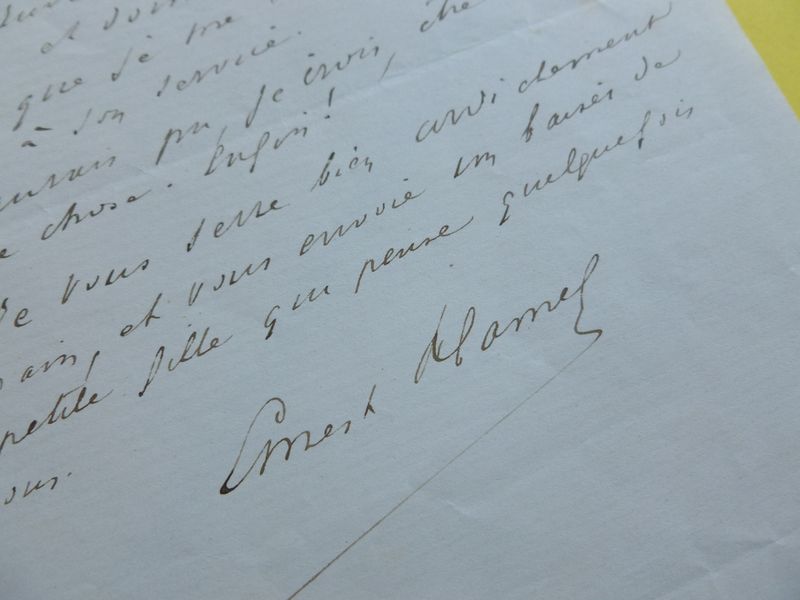 et
que je me
à son service.
pu, je crois, che
chose. Enfin!
Je vous serre bien cordialement
main, et vous envoie un baiser de
petite fille qui pense quelquefois
vous.
Ernest Hamel